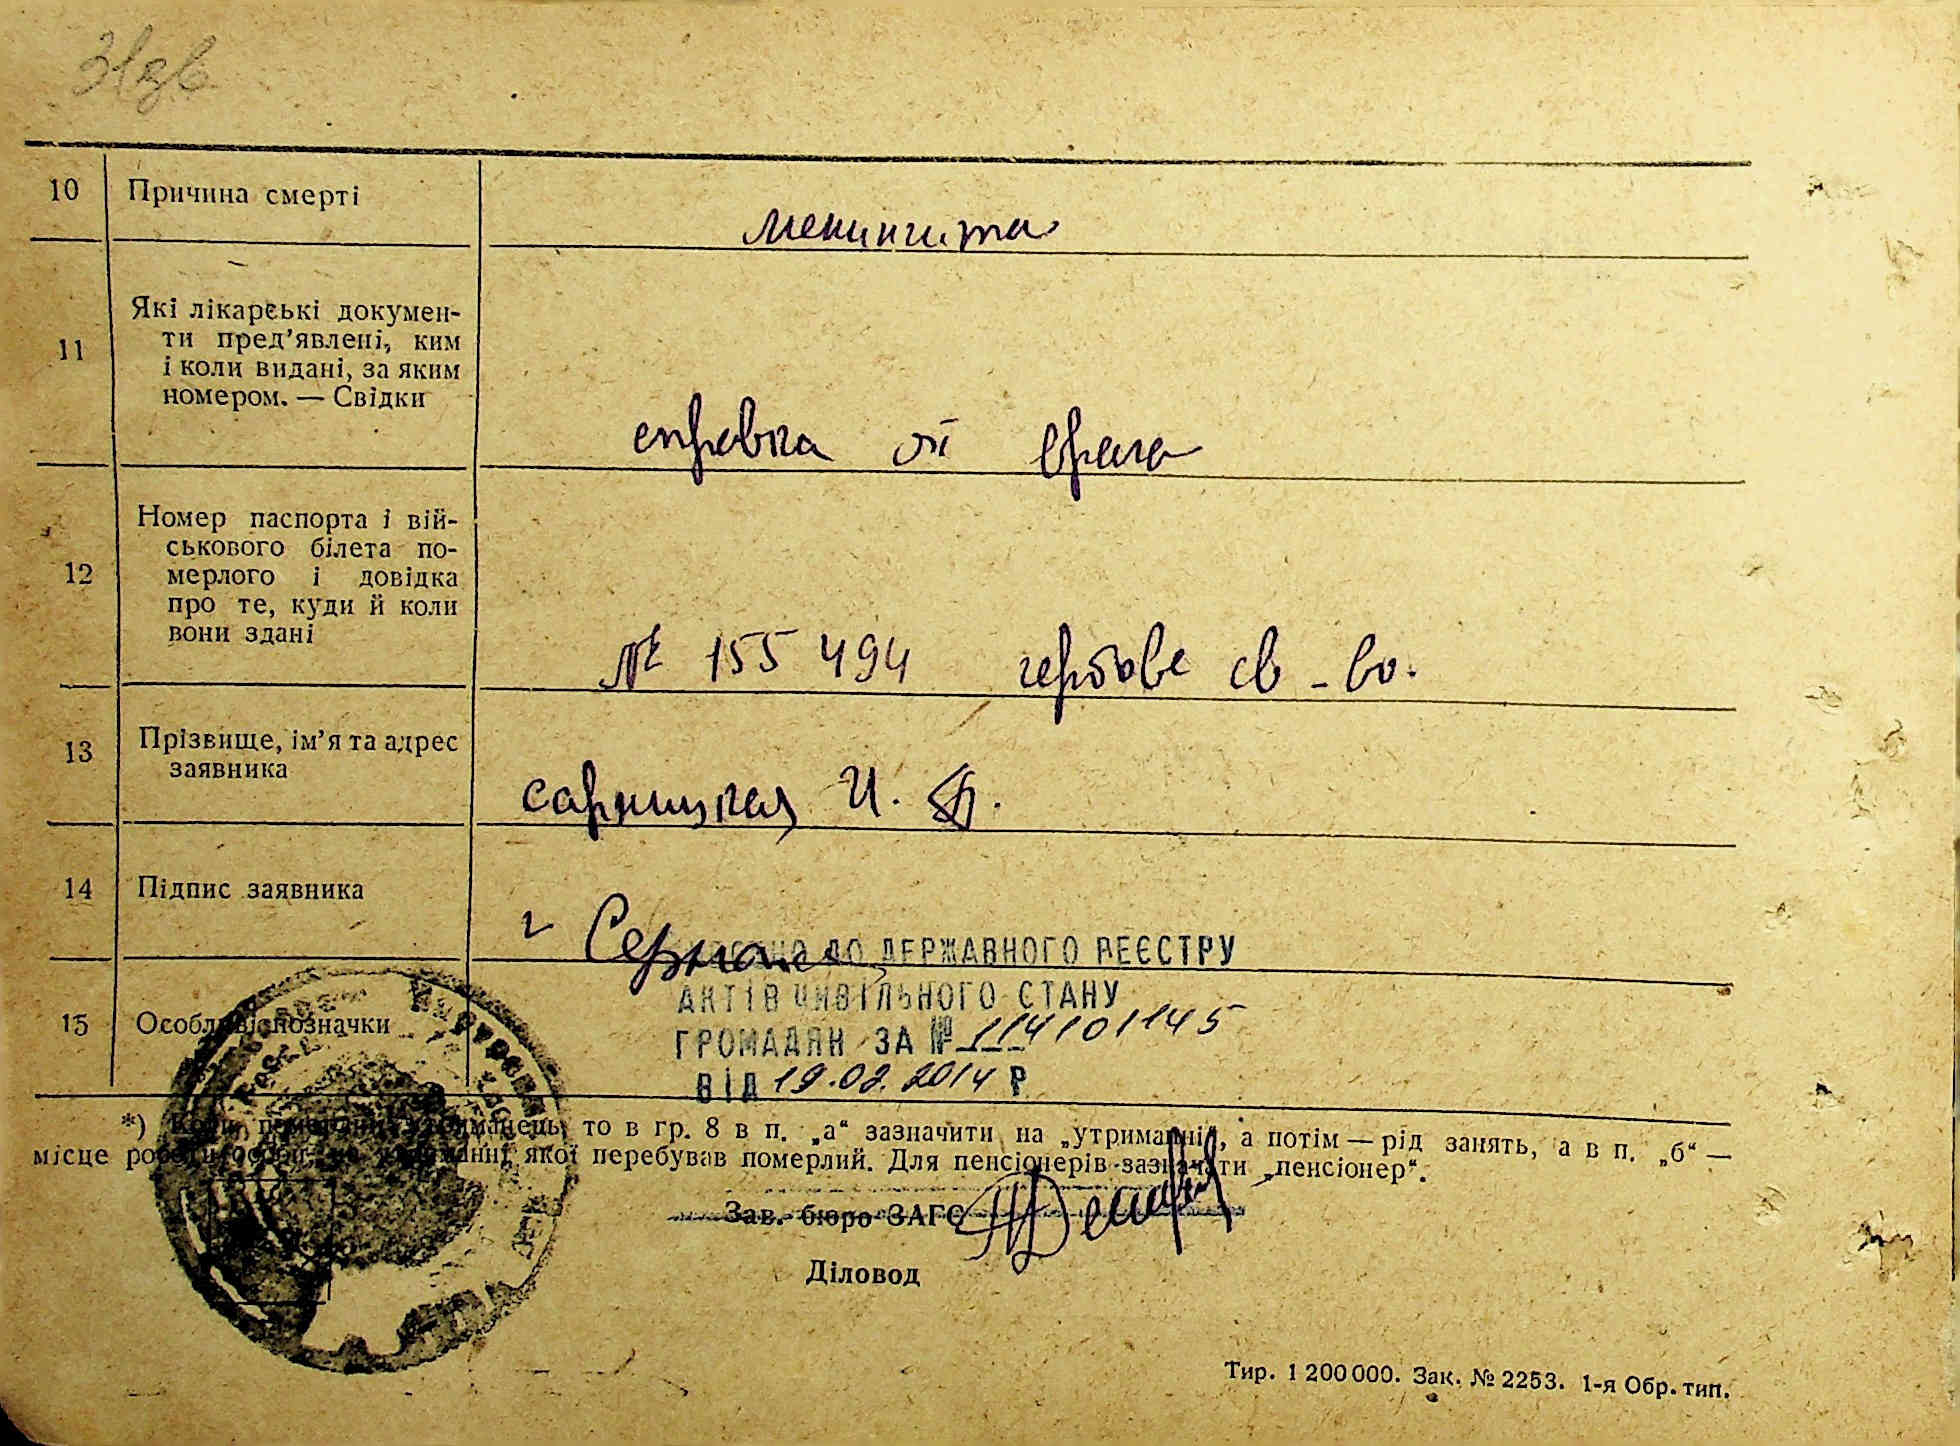 10 Причина смерті
менингита
11 Які лікарські докумен-
ти пред’явлені, ким
і коли видані, за яким
номером. — Свідки
справка от врача
12 Номер паспорта і вій-
ськового білета по-
мерлого і довідка
про те, куди й коли
вони здані
№ 155494 гербове св-во.
13 Прізвище, ім’я та адрес
заявника
И.
14 Підпис заявника
ДО ДЕРЖАВНОГО РЕЄСТРУ
АКТІВ ЦИВІЛЬНОГО СТАНУ
15 Особливі позначки
ГРОМАДЯН ЗА № 114101145
ВІД 19.02.2014 Р
*) Коли померлий утриманець, то в гр. 8 в п. „а“ зазначити на „утриманні“, а потім — рід занять, а в п. „б“ —
місце роботи особи, на утриманні якої перебував померлий. Для пенсіонерів зазначати „пенсіонер“.
Зав. бюро ЗАГС
Діловод
Тир. 1 200 000. Зак. № 2253. 1-я Обр. тип.